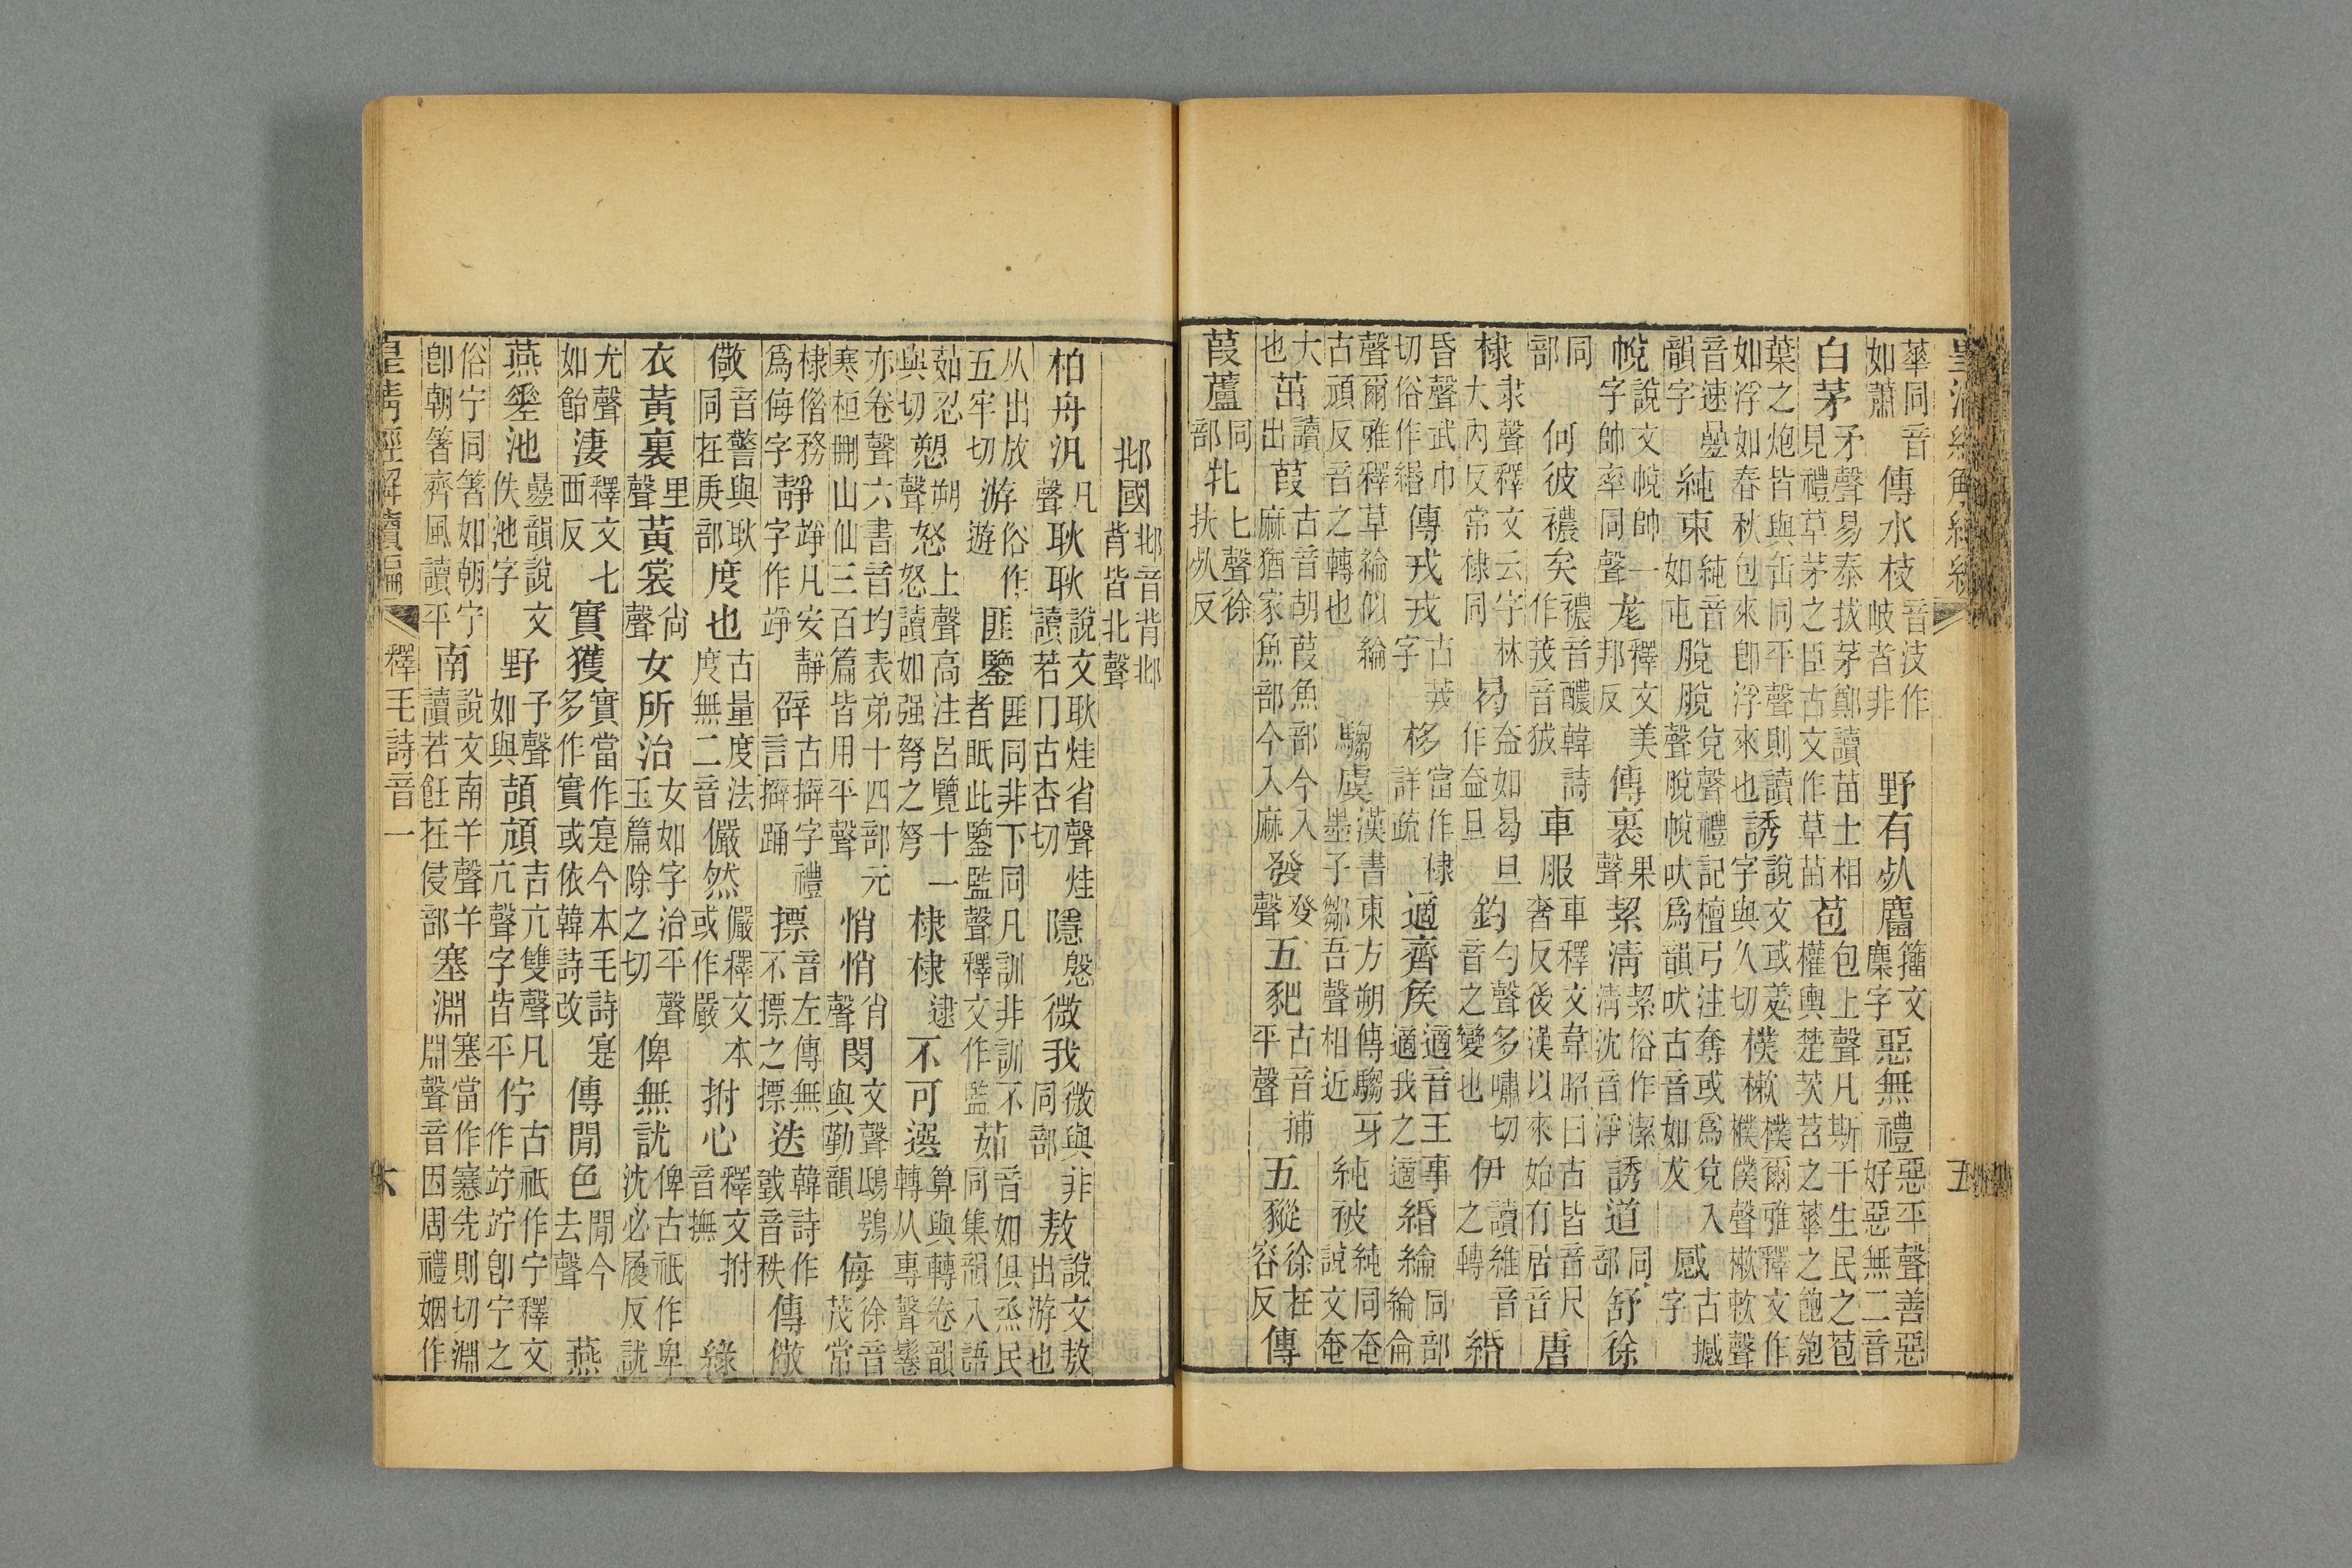 皇清經解續編 五
華同音如蕭傳水枝音技作岐者非野有死麕籀文麇字惡無禮惡平聲善惡好惡無二音
白茅矛聲易泰拔茅鄭讀苗士相見禮草茅之臣古文作草苗苞包上聲凡斯干生民之苞權輿楚茨苕之華之飽匏
葉之炮皆與缶同平聲則讀如浮如春秋包來卽浮來也誘說文或羑字與久切樸樕樸爾雅釋文作樸僕聲樕欶聲
音速韻字純束純音如屯脫脫兌聲禮記檀弓注奪或爲兌入聲脫帨吠爲韻吠古音如犮感古撼字
帨說文帨帥一字帥率同聲尨釋文美邦反傳裹果聲絜淸絜俗作潔淸沈音淨誘道同部舒徐
同部何彼襛矣襛音醲韓詩作茙音狨車服車釋文韋昭曰古皆音尺奢反後漢以來始有居音唐
棣隶聲釋文云字林大內反常棣同曷益如曷旦作益旦鈞勻聲多嘯切音之變也伊讀維音之轉緡
昏聲武巾切俗作緍傳戎戎古茙字栘當作棣詳疏適齊矦適音王事適我之適緡綸同部綸侖
聲爾雅釋草綸似綸古頑反音之轉也騶虞漢書東方朔傳騶牙墨子鄒吾聲相近純被純同奄說文奄
大也茁讀出葭古音朝葭魚部今入麻猶家魚部今入麻發癹聲五豝古音捕平聲五豵徐在容反傳
葭蘆同部牝匕聲徐扶死反
邶國邶音背邶背皆北聲
柏舟汎凡聲耿耿說文耿烓省聲烓讀若冂古杏切隱慇微我微與非同部敖說文敖出游也
从出放五牢切游俗作遊匪鑒匪同非下同凡訓非訓不者眂此鑒監聲釋文作監茹音如俱烝民同集韻入語
茹忍與切愬朔聲怒上聲高注呂覽十一怒讀如强弩之弩棣棣逮不可選算與轉卷韻轉从專聲鬈
亦卷聲六書音均表弟十四部元寒桓刪山仙三百篇皆用平聲悄悄肖聲閔文聲鴟鴞與勤韻侮徐音茂常
棣偕務爲侮字靜竫凡安靜字作竫辟古擗字禮言擗踊摽音左傳無不摽之摽迭韓詩作音秩傳儆
儆音警與耿同在庚部度也古量度法度無二音儼然儼釋文本或作嚴拊心釋文拊音撫綠
衣黃裏里聲黃裳尙聲女所治女如字治平聲玉篇除之切俾無訧俾古祇作卑沈必履反訧
尤聲如飴淒釋文七西反實獲實當作寔今本毛詩寔多作實或依韓詩改傳閒色閒今去聲燕
燕池韻說文佚池字野予聲如與頡頏吉亢雙聲凡亢聲字皆平佇古祇作宁釋文作竚竚卽宁之
俗宁同箸如朝宁卽朝箸齊風讀平南說文南羊聲羊讀若飪在侵部塞淵塞當作先則切淵淵聲音因周禮姻作
皇清經解續編 釋毛詩音一 六